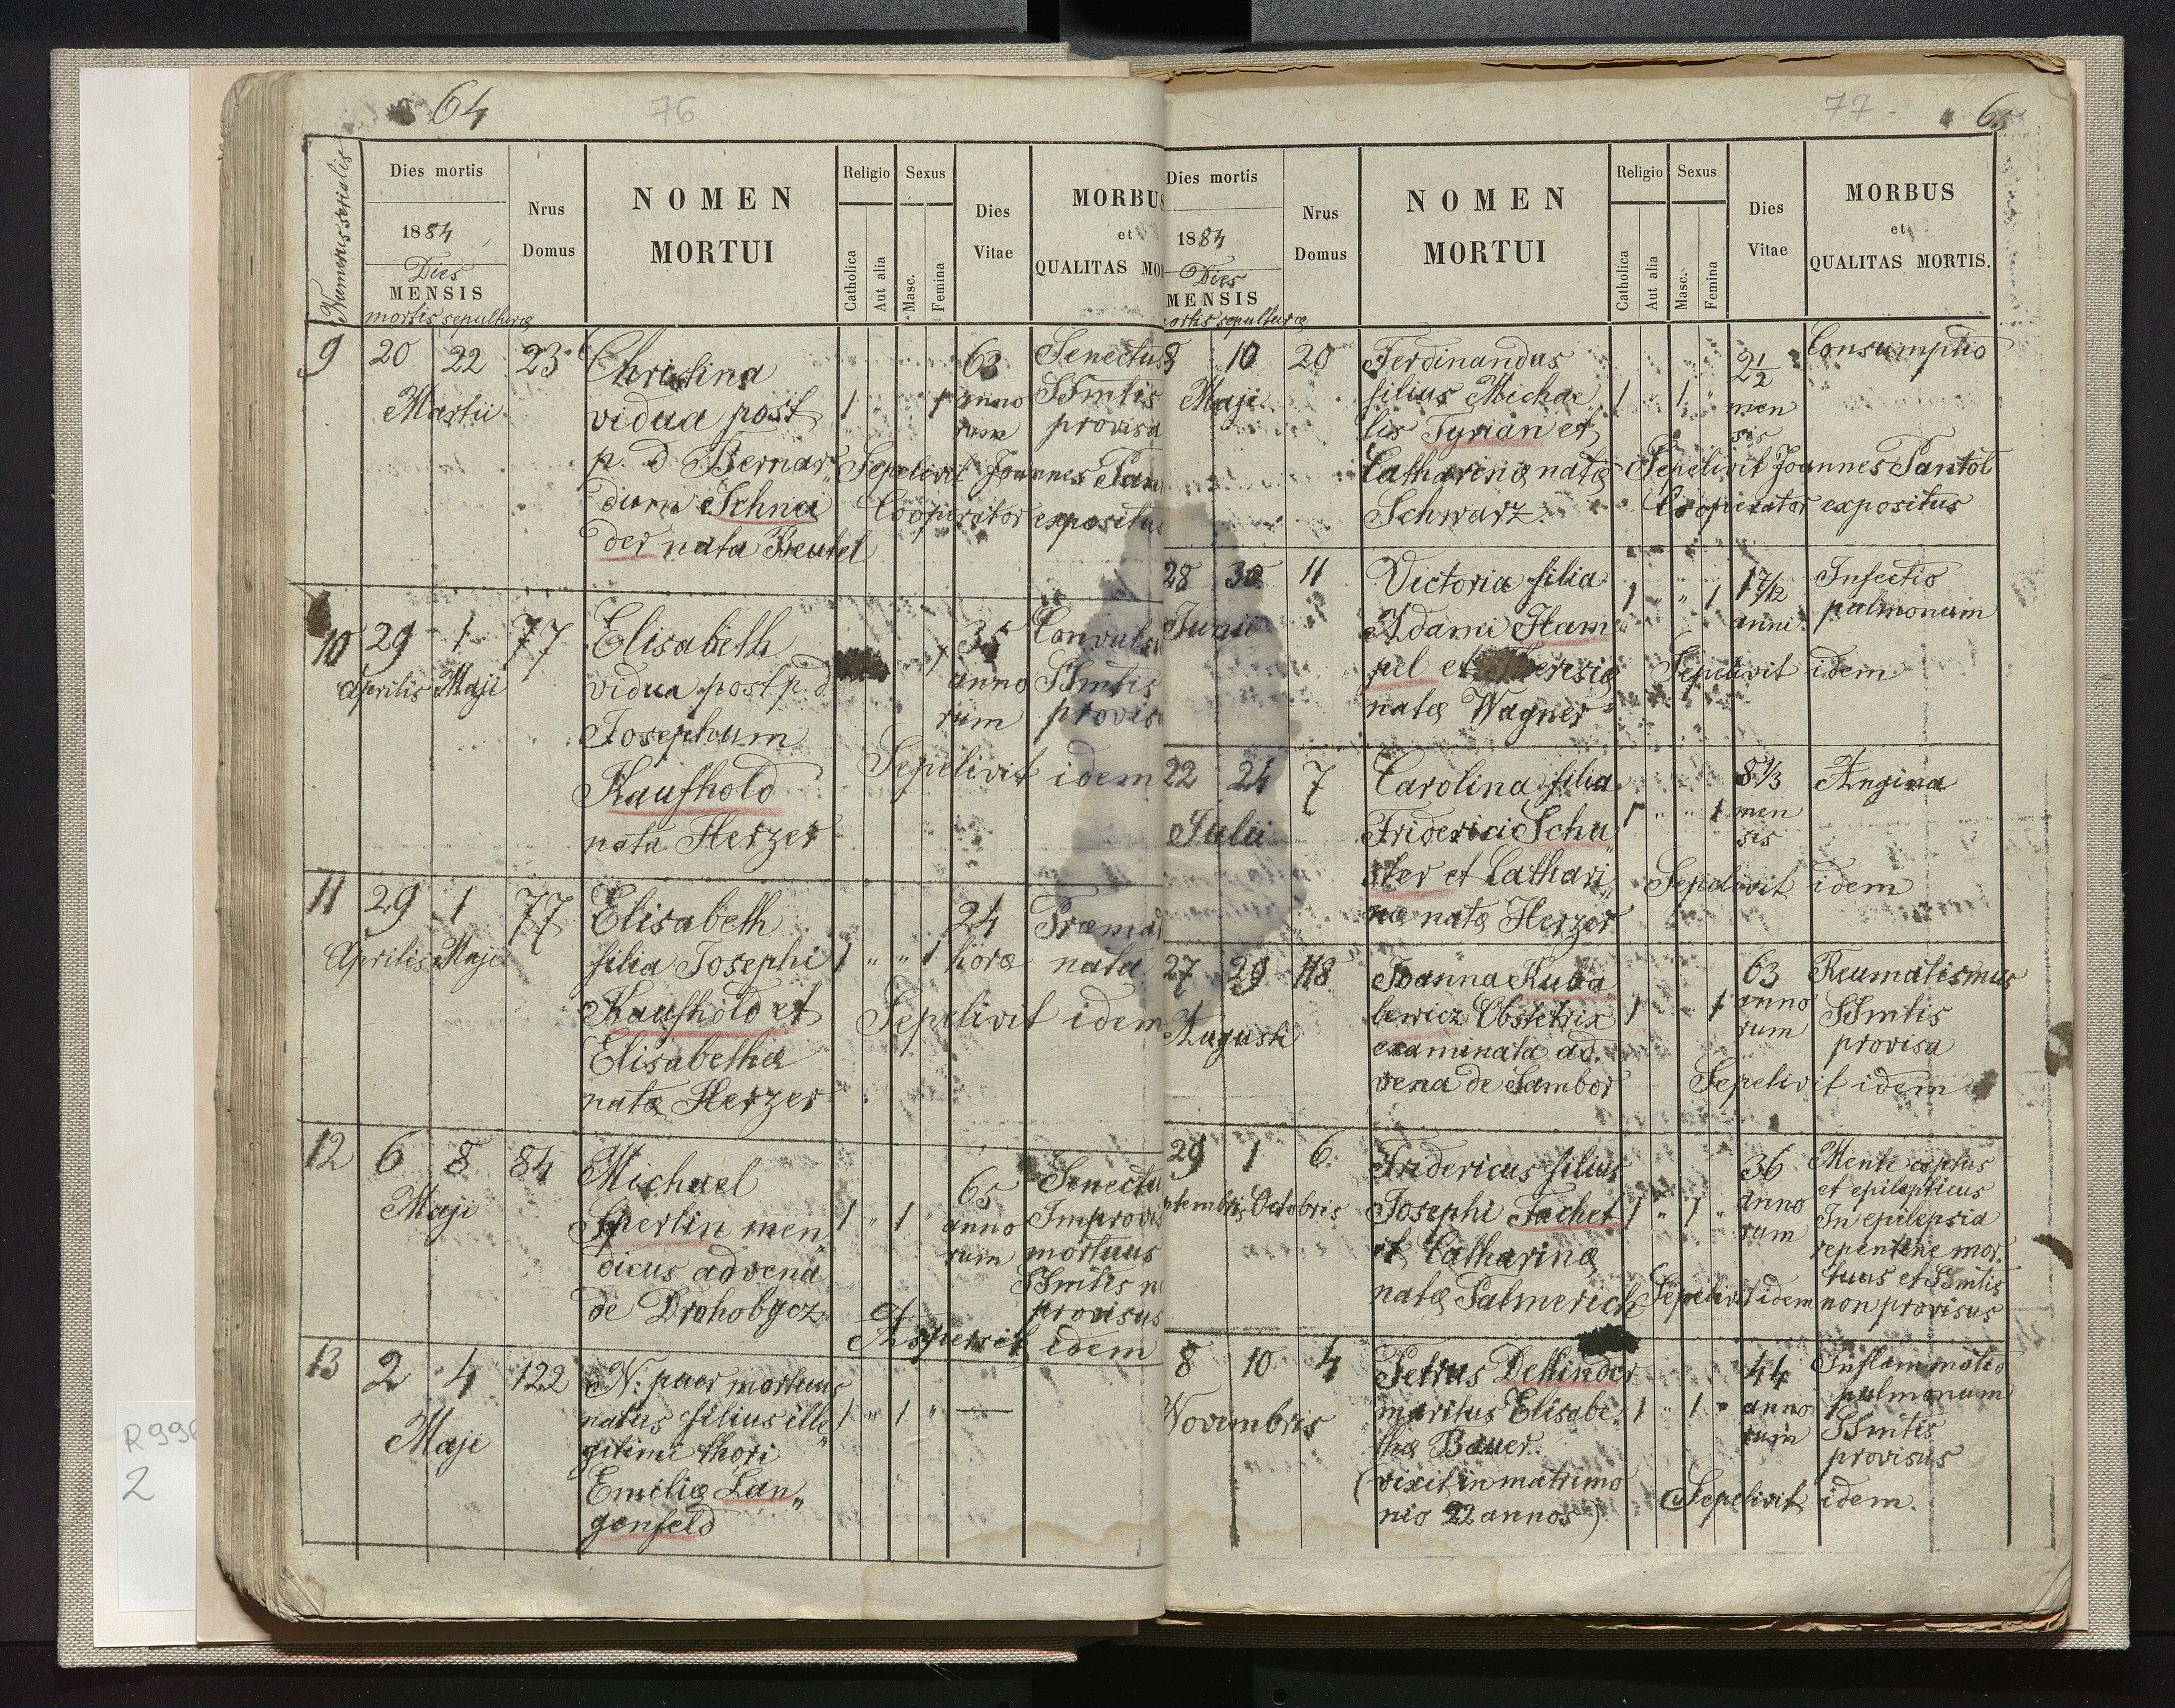 64
76
Numerus serialis
Dies mortis
1884
Dies
MENSIS
mortis sepulturæ
Nrus
Domus
NOMEN
MORTUI
Religio
Catholica
Aut alia
Sexus
Masc.
Femina
Dies
Vitae
MORBUS
et
QUALITAS MO
9 20 22 23
Martii
Christina
vidua post
p. d. Bernar„
dum Schnei
der nata Beutel
1 „ „ 1
63
anno
rum
Senectus
SSmtis
provisa
Sepelivit Joannes Pan
Cooperator expositus
10 29 1 77
Aprilis Maji
Elisabeth
vidua post p. d.
Josephum
Kaufhold
nata Herzer
35
anno
rum
Convuls
SSmtis
provis
Sepelivit idem
11 29 1 77
Aprilis Maji
Elisabeth
filia Josephi
Kaufhold et
Elisabethæ
natæ Herzer
1 „ „ 1
24
horæ
Præmat
nata
Sepelivit idem
12 6 8 84
Maji
Michael
Sperlin men„
dicus advena
de Drohobycz
1 „ 1
65
anno
rum
Senectu
Improvis
mortuus
SSmtis n
provisus
Aspersit idem
13 2 4 122
Maji
N. puer mortuus
natus filius ille„
gitimi thori
Emiliæ Lan„
genfeld
1 „ 1 „ —
77
65
Dies mortis
1884
Dies
MENSIS
mortis sepulturæ
Nrus
Domus
NOMEN
MORTUI
Religio
Catholica
Aut alia
Sexus
Masc.
Femina
Dies
Vitae
MORBUS
et
QUALITAS MORTIS.
8 10 20
Maji
Ferdinandus
filius Michae„
lis Tyrian et
Catharinæ natæ
Schwarz
1 „ 1 „
2 1/2
men
sis
Consumptio
Sepelivit Joannes Pantoł
Cooperator expositus
28 30 11
Junii
Victoria filia
Adami Ham
pel et Theresiæ
natæ Wagner
1 „ „ 1
1 7/12
anni
Infectio
pulmonum
Sepelivit idem
22 24 7
Julii
Carolina filia
Friderici Schu„
ster et Cathari„
næ natæ Herzer
1 „ „ 1
8 1/3
men
sis
Angina
Sepelivit idem
27 29 118
Augusti
Joanna Kuba„
lewicz Obstetrix
examinata ad.
vena de Sambor
1 „ „ 1
63
anno
rum
Reumatismus
SSmtis
provisa
Sepelivit idem
29 1 6.
ptembris Octobris
Fridericus filius
Josephi Tachet
et Catharinæ
natæ Palmerich
1 „ 1 „
36
anno
rum
Mente captus
et epilepticus
In epilepsia
repentine mor„
tuus et SSmtis
non provisus
Sepelivit idem
8 10 4
Novembris
Petrus Dellinder
maritus Elisabe„
thæ Bauer.
(vixit in matrimo
nio 22 annos)
1 „ 1 „
44
anno
rum
Inflammatio
pulmonum
SSmtis
provisus
Sepelivit idem.
R996
2